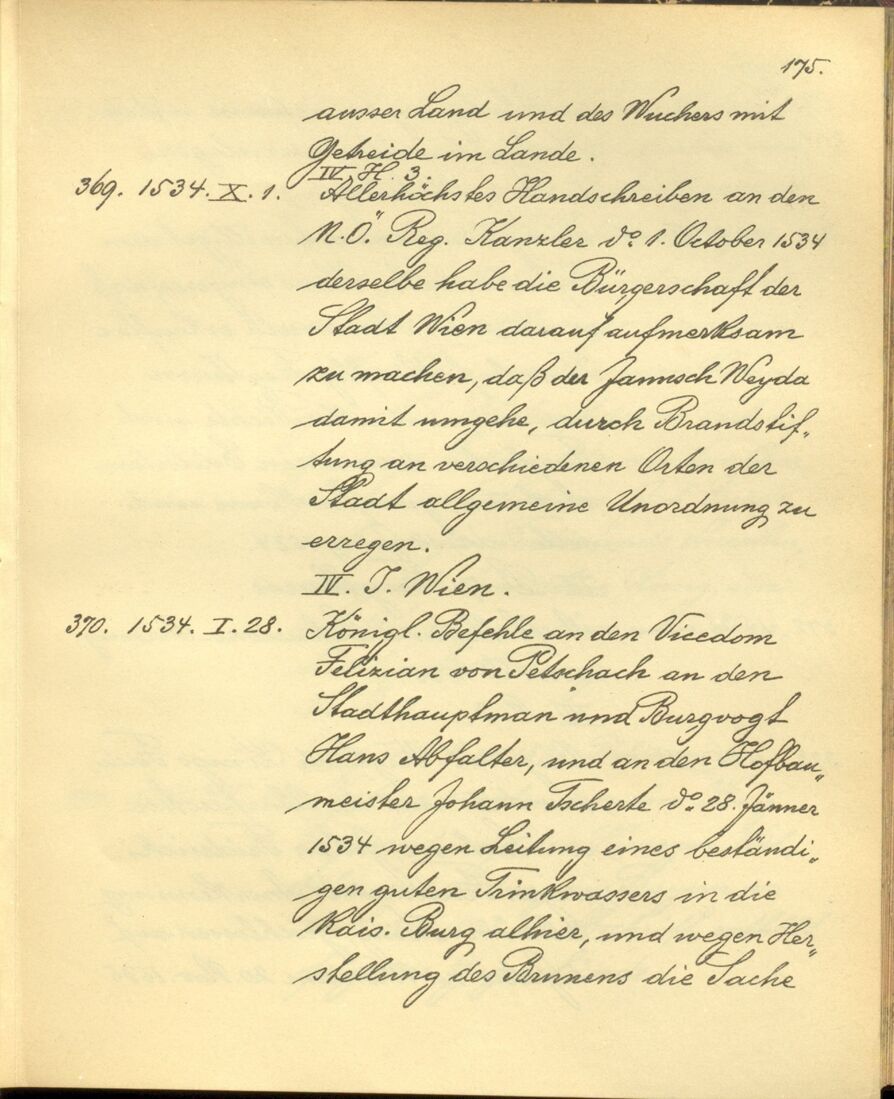 175.
ausser Land und des Wuchers mit
Getreide im Lande.
IV. H. 3.
369. 1534. X. 1. Allerhöchstes Handschreiben an den
N.Ö. Reg. Kanzler do 1. October 1534
derselbe habe die Bürgerschaft der
Stadt Wien darauf aufmerksam
zu machen, daß der Jannsch Weyda
damit umgehe, durch Brandstif„
tung an verschiedenen Orten der
Stadt allgemeine Unordnung zu
erregen.
IV. J. Wien.
370. 1534. I. 28. Königl. Befehle an den Vicedom
Felizian von Petschach an den
Stadthauptman und Burgvogt
Hans Abfalter, und an den Hofbau„
meister Johann Tscherte do 28. Jänner
1534 wegen Leitung eines beständi„
gen guten Trinkwassers in die
Kais. Burg alhier, und wegen Her„
stellung des Brunens die Sache